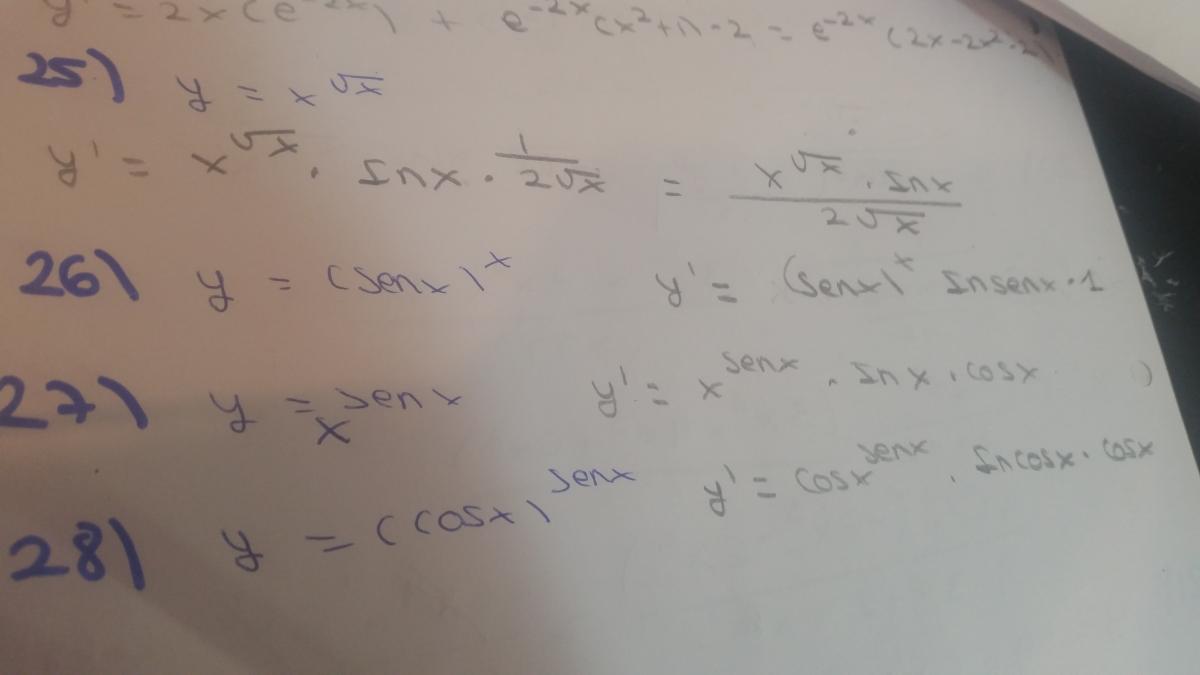 y' = 2x(e^-2x) + e^-2x (x²+1)·-2 = e^-2x (2x-2x²-2)
25) y = x^√x
y' = x^√x · lnx · 1/2√x = x^√x · lnx / 2√x
26) y = (senx)^x y' = (senx)^x lnsenx · 1
27) y = x^senx y' = x^senx · lnx · cosx
28) y = (cosx)^senx y' = cosx^senx · lncosx · cosx